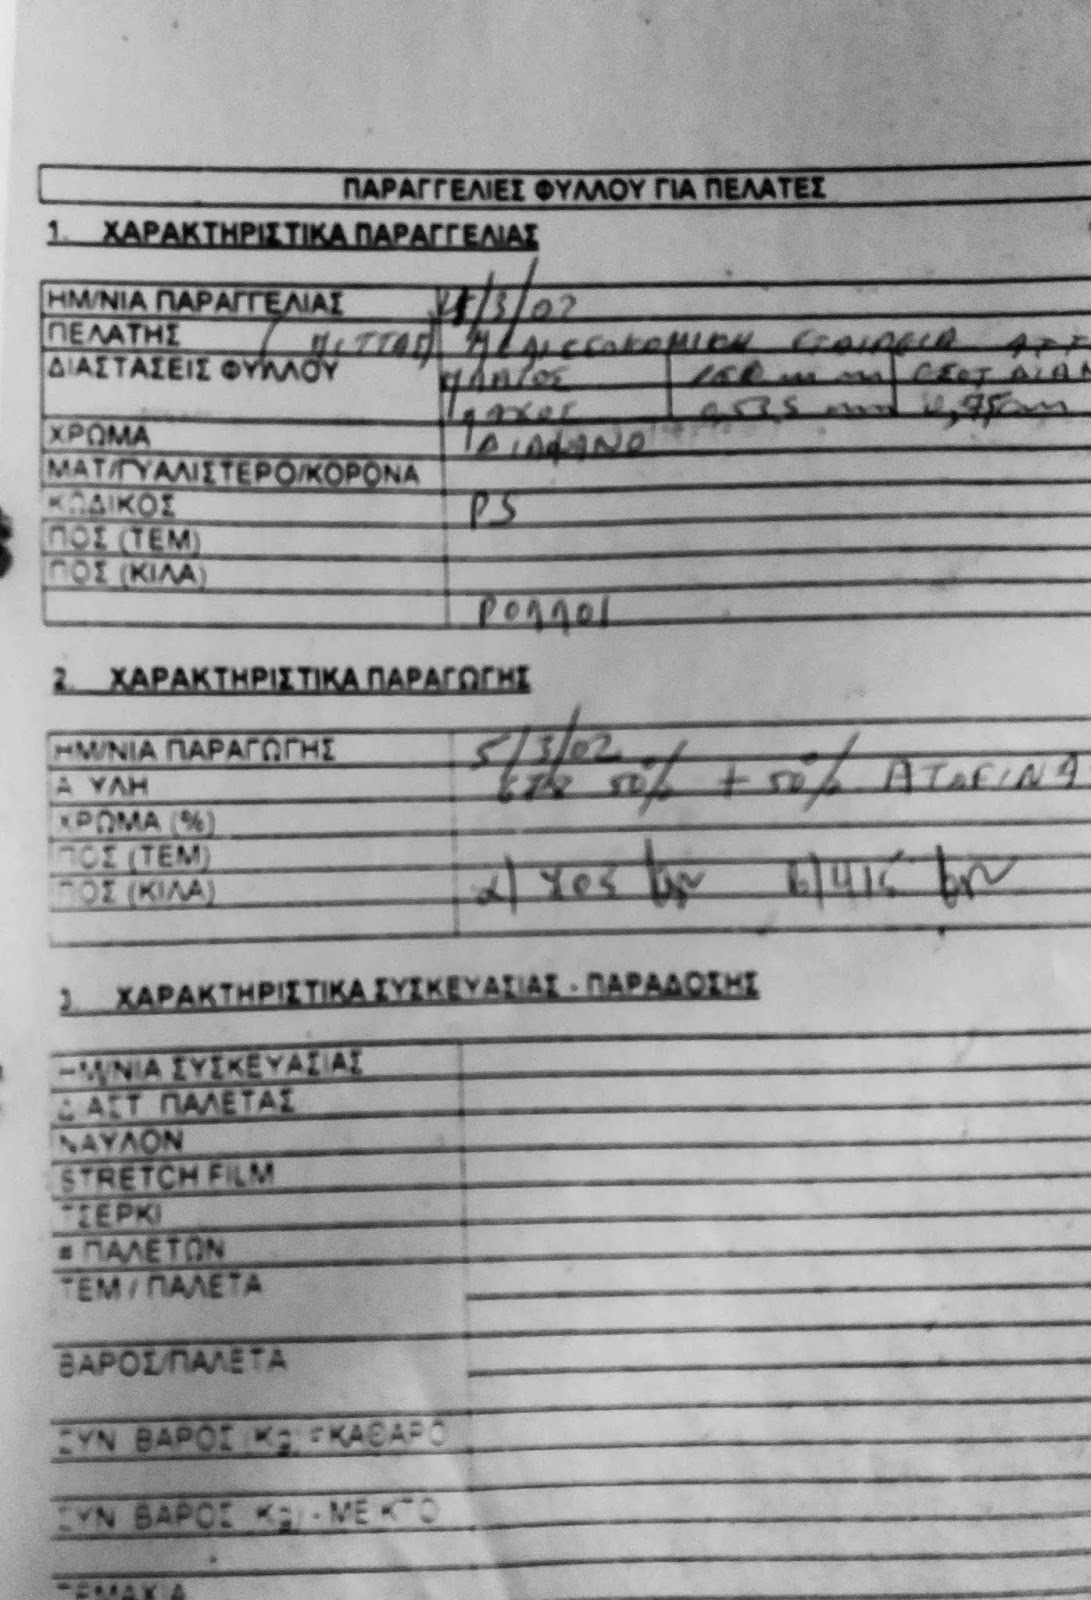 ΠΑΡΑΓΓΕΛΙΕΣ ΦΥΛΛΟΥ ΓΙΑ ΠΕΛΑΤΕΣ
1. ΧΑΡΑΚΤΗΡΙΣΤΙΚΑ ΠΑΡΑΓΓΕΛΙΑΣ
ΗΜ/ΝΙΑ ΠΑΡΑΓΓΕΛΙΑΣ /3/02
ΠΕΛΑΤΗΣ (ΠΙΤΤΑΣ) ΜΕΛΙΣΣΟΚΟΜΙΚΗ ΕΤΑΙΡΕΙΑ
ΔΙΑΣΤΑΣΕΙΣ ΦΥΛΛΟΥ ΠΛΑΤΟΣ mm
ΠΑΧΟΣ 0,535 mm
ΧΡΩΜΑ ΔΙΑΦΑΝΟ
ΜΑΤ/ΓΥΑΛΙΣΤΕΡΟ/ΚΟΡΟΝΑ
ΚΩΔΙΚΟΣ PS
ΠΟΣ (ΤΕΜ)
ΠΟΣ (ΚΙΛΑ)
ΡΟΛΛΟΙ
2. ΧΑΡΑΚΤΗΡΙΣΤΙΚΑ ΠΑΡΑΓΩΓΗΣ
ΗΜ/ΝΙΑ ΠΑΡΑΓΩΓΗΣ 5/3/02
Α ΥΛΗ 50% + 50%
ΧΡΩΜΑ (%)
ΠΟΣ (ΤΕΜ)
ΠΟΣ (ΚΙΛΑ)
3. ΧΑΡΑΚΤΗΡΙΣΤΙΚΑ ΣΥΣΚΕΥΑΣΙΑΣ - ΠΑΡΑΔΟΣΗΣ
ΗΜ/ΝΙΑ ΣΥΣΚΕΥΑΣΙΑΣ
ΔΙΑΣΤ ΠΑΛΕΤΑΣ
ΝΑΥΛΟΝ
STRETCH FILM
ΤΣΕΡΚΙ
# ΠΑΛΕΤΩΝ
ΤΕΜ / ΠΑΛΕΤΑ
ΒΑΡΟΣ/ΠΑΛΕΤΑ
ΣΥΝ ΒΑΡΟΣ (Kg) - ΚΑΘΑΡΟ
ΣΥΝ ΒΑΡΟΣ (Kg) - ΜΕΙΚΤΟ
ΤΕΜΑΧΙΑ